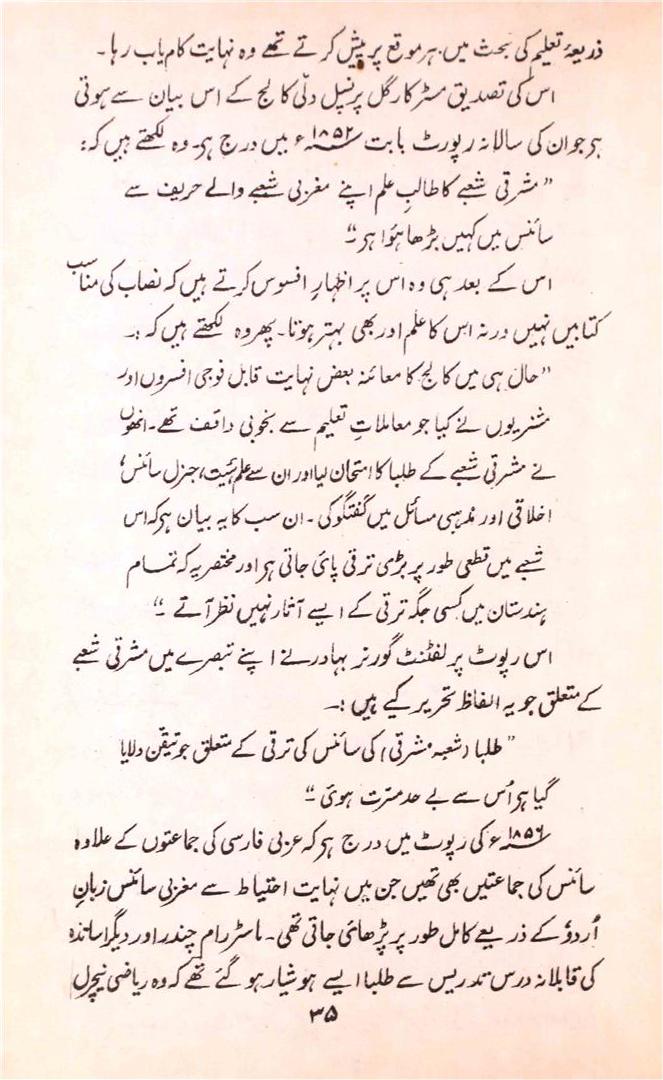 ذریعۂ تعلیم کی بحث میں ہر موقع پر پیش کرتے تھے وہ نہایت کام یاب رہا۔
اس کی تصدیق مسٹر کارگل پرنسپل دلّی کالج کے اس بیان سے ہوتی
ہر جو ان کی سالانہ رپورٹ بابت ۱۸۵۲ء میں درج ہر۔ وہ لکھتے ہیں کہ:
"مشرقی شعبے کا طالبِ علم اپنے مغربی شعبے والے حریف سے
سائنس میں کہیں بڑھا ہؤا ہر۔"
اس کے بعد ہی وہ اس پر اظہارِ افسوس کرتے ہیں کہ نصاب کی مناسب
کتابیں نہیں ورنہ اس کا علم اور بھی بہتر ہوتا۔ پھر وہ لکھتے ہیں کہ:۔
"حال ہی میں کالج کا معائنہ بعض نہایت قابل فوجی افسروں اور
مشنریوں نے کیا جو معاملاتِ تعلیم سے بخوبی واقف تھے۔ انھوں
نے مشرقی شعبے کے طلبا کا امتحان لیا اور ان سے علم ہیئت، جنرل سائنس،
اخلاقی اور مذہبی مسائل میں گفتگو کی۔ ان سب کا یہ بیان ہر کہ اس
شعبے میں قطعی طور پر بڑی ترقی پائی جاتی ہر اور مختصر یہ کہ تمام
ہندستان میں کسی جگہ ترقی کے ایسے آثار نہیں نظر آتے۔"
اس رپوٹ پر لفٹنٹ گورنر بہادر نے اپنے تبصرے میں مشرقی شعبے
کے متعلق جو یہ الفاظ تحریر کیے ہیں:۔
"طلبا (شعبہ مشرقی) کی سائنس کی ترقی کے متعلق جو تیقّن دلایا
گیا ہر اُس سے بے حد مسرّت ہوئی۔"
۱۸۵۶ء کی رپوٹ میں درج ہر کہ عربی فارسی کی جماعتوں کے علاوہ
سائنس کی جماعتیں بھی تھیں جن میں نہایت احتیاط سے مغربی سائنس زبانِ
اُردؤ کے ذریعے کامل طور پر پڑھائی جاتی تھی۔ ماسٹر رام چندر اور دیگر اساتذہ
کی قابلانہ درس تدریس سے طلبا ایسے ہوشیار ہو گئے تھے کہ وہ ریاضی نیچرل
۳۵